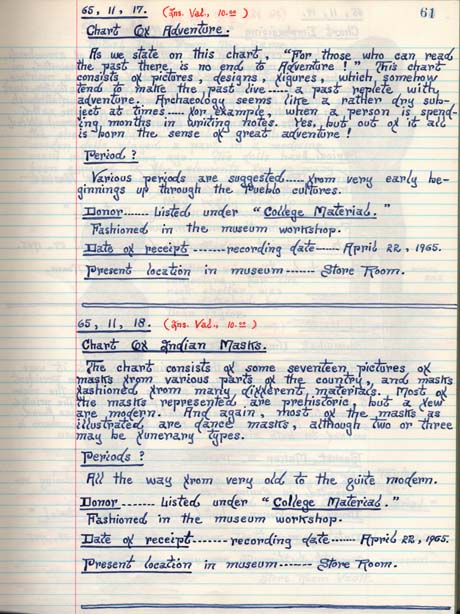 65, 11, 17. (Ins. Val., 10.00) 61
Chart Of Adventure.
As we state on this chart, "For those who can read
the past there is no end to Adventure!" This chart
consists of pictures, designs, figures, which somehow
tend to make the past live..... a past replete with
adventure. Archaeology seems like a rather dry sub-
ject at times..... for example, when a person is spend-
ing months in writing notes. Yes, but out of it all
is born the sense of great adventure!
Period?
Various periods are suggested..... from very early be-
ginnings up through the Pueblo cultures.
Donor....... Listed under "College Material."
Fashioned in the museum workshop.
Date of receipt ------- recording date ------ April 22, 1965.
Present location in museum ------- Store Room.
65, 11, 18. (Ins. Val., 10.00)
Chart Of Indian Masks.
The chart consists of some seventeen pictures of
masks from various parts of the country, and masks
fashioned from many different materials. Most of
the masks represented are prehistoric but a few
are modern. And again, most of the masks as
illustrated are dance masks, although two or three
may be funerary types.
Periods?
All the way from very old to the quite modern.
Donor ------- Listed under "College Material."
Fashioned in the museum workshop.
Date of receipt -------- recording date ------ April 22, 1965.
Present location in museum ------ Store Room.